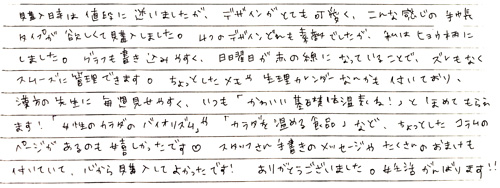 購入時は値段に迷いましたが、デザインがとても可愛く、こんな感じの手帳
タイプが欲しくて購入しました。4つのデザインどれも素敵でしたが、私はヒョウ柄に
しました。グラフも書き込みやすく、日曜日が赤の線になっていることで、ズレもなく
スムーズに管理できます。ちょっとしたメモや生理カレンダーなんかも付いており、
漢方の先生に毎週見せやすく、いつも「かわいい基礎体温表ね!」とほめてもらえ
ます!「女性のカラダのバイオリズム」や「カラダを温める食品」など、ちょっとしたコラムの
ページがあるのも嬉しかったです♡ スタッフさんの手書きのメッセージやたくさんのおまけも
付いていて、心から購入してよかったです! ありがとうございました。妊活がんばります!!